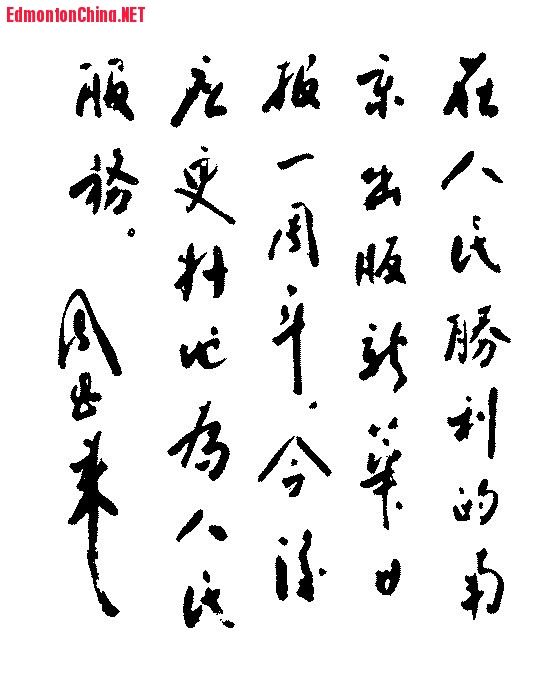 EdmontonChina.NET
在人民勝利的南
京出版新華日
报一周年,今後
应更好地为人民
服務。
周恩来